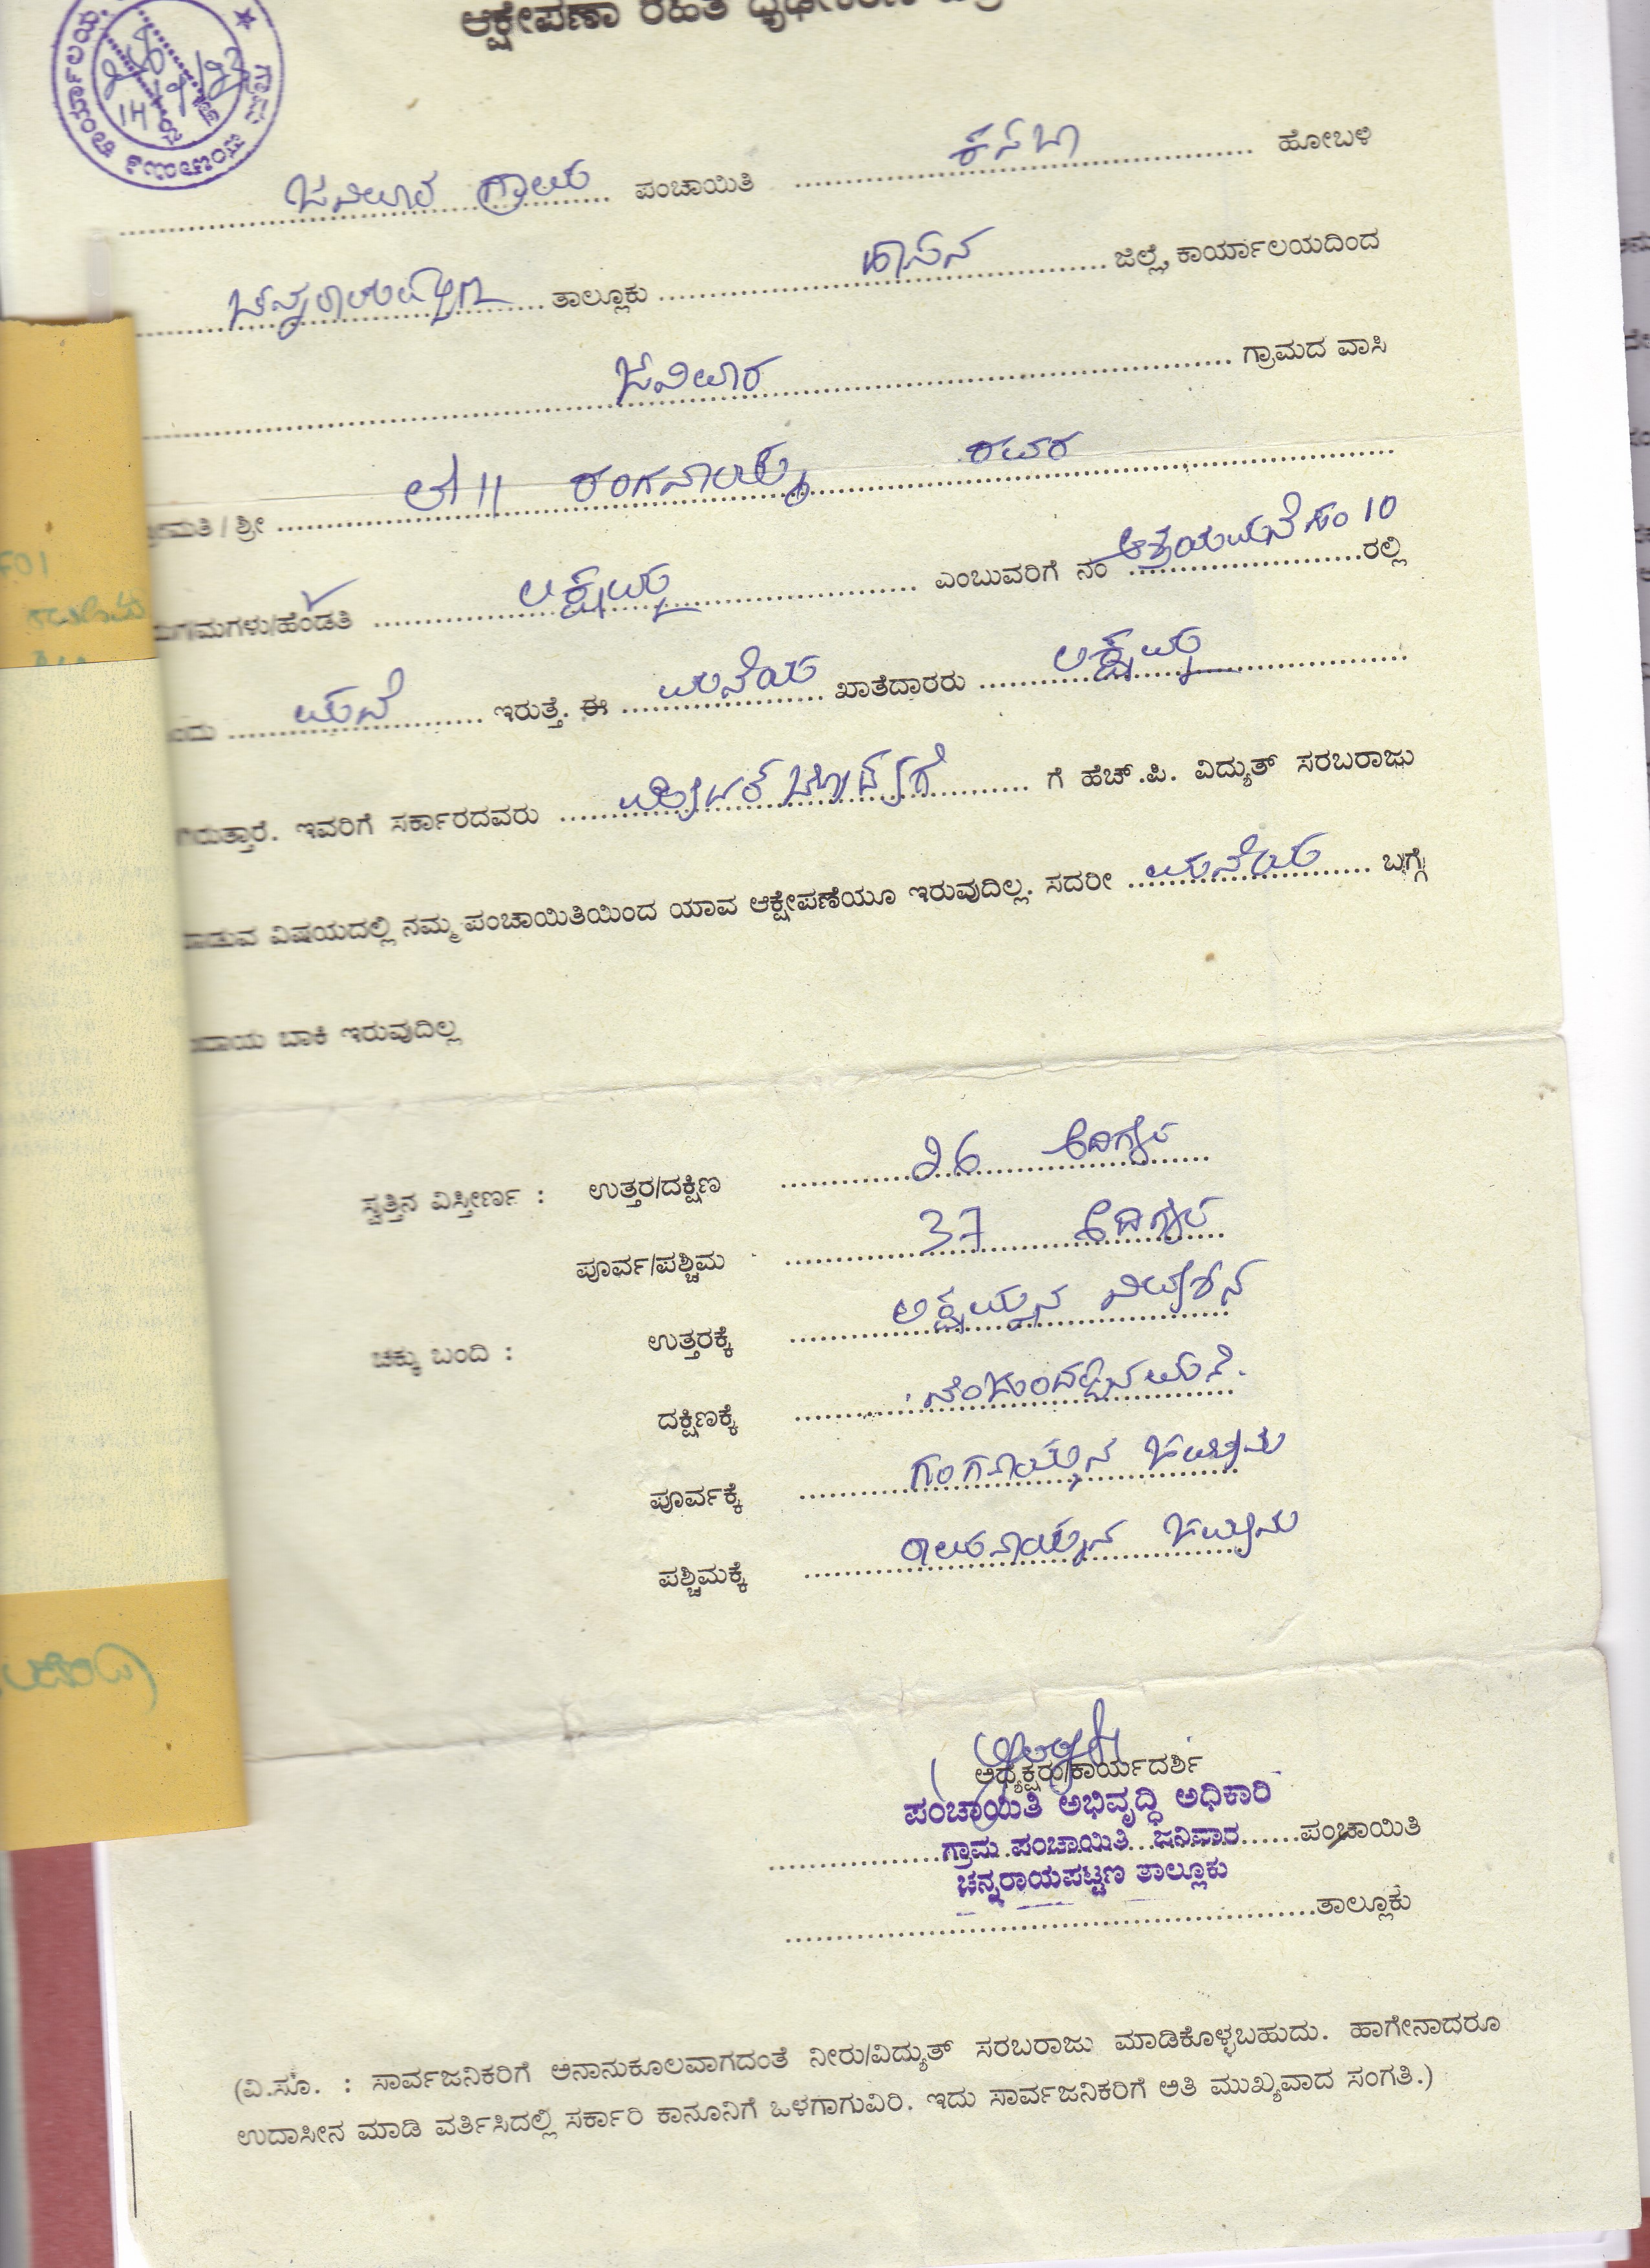 ಆಕ್ಷೇಪಣಾ ರಹಿತ ಧೃಢೀಕರಣ
ಗ್ರಾಮ ಪಂಚಾಯಿತಿ ಕಾರ್ಯಾಲಯ
ಜನಿವಾರ ಗ್ರಾಮ ಪಂಚಾಯಿತಿ ಕಸಬಾ ಹೋಬಳಿ
ಚನ್ನರಾಯಪಟ್ಟಣ ತಾಲ್ಲೂಕು ಹಾಸನ ಜಿಲ್ಲೆ, ಕಾರ್ಯಾಲಯದಿಂದ
ಜನಿವಾರ ಗ್ರಾಮದ ವಾಸಿ
ಶ್ರೀಮತಿ / ಶ್ರೀ ಲೇ|| ರಂಗನಾಯ್ಕ ರವರ
ಮಗ/ಮಗಳು/ಹೆಂಡತಿ ಲಕ್ಷ್ಮಮ್ಮ ಎಂಬುವರಿಗೆ ನಂ ಆಶ್ರಯಮನೆ ಸಂ 10 ರಲ್ಲಿ
ಮನೆ ಇರುತ್ತೆ. ಈ ಮನೆಯ ಖಾತೆದಾರರು ಲಕ್ಷ್ಮಮ್ಮ
ಇವರಿಗೆ ಸರ್ಕಾರದವರು ಗೆ ಹೆಚ್.ಪಿ. ವಿದ್ಯುತ್ ಸರಬರಾಜು
ಮಾಡುವ ವಿಷಯದಲ್ಲಿ ನಮ್ಮ ಪಂಚಾಯಿತಿಯಿಂದ ಯಾವ ಆಕ್ಷೇಪಣೆಯೂ ಇರುವುದಿಲ್ಲ. ಸದರೀ ಮನೆಯ ಬಗ್ಗೆ
ಬಾಕಿ ಇರುವುದಿಲ್ಲ
ಸ್ವತ್ತಿನ ವಿಸ್ತೀರ್ಣ : ಉತ್ತರ/ದಕ್ಷಿಣ 26 ಅಡಿಗಳು
ಪೂರ್ವ/ಪಶ್ಚಿಮ 37 ಅಡಿಗಳು
ಚಕ್ಕು ಬಂದಿ : ಉತ್ತರಕ್ಕೆ
ದಕ್ಷಿಣಕ್ಕೆ
ಪೂರ್ವಕ್ಕೆ ಗಂಗನಾಯ್ಕನ ಜಮೀನು
ಪಶ್ಚಿಮಕ್ಕೆ ರಾಮನಾಯ್ಕನ ಜಮೀನು
ಅಧ್ಯಕ್ಷರು/ಕಾರ್ಯದರ್ಶಿ
ಪಂಚಾಯಿತಿ ಅಭಿವೃದ್ಧಿ ಅಧಿಕಾರಿ
ಗ್ರಾಮ ಪಂಚಾಯಿತಿ ಜನಿವಾರ ಪಂಚಾಯಿತಿ
ಚನ್ನರಾಯಪಟ್ಟಣ ತಾಲ್ಲೂಕು
ತಾಲ್ಲೂಕು
(ವಿ.ಸೂ. : ಸಾರ್ವಜನಿಕರಿಗೆ ಅನಾನುಕೂಲವಾಗದಂತೆ ನೀರು/ವಿದ್ಯುತ್ ಸರಬರಾಜು ಮಾಡಿಕೊಳ್ಳಬಹುದು. ಹಾಗೇನಾದರೂ
ಉದಾಸೀನ ಮಾಡಿ ವರ್ತಿಸಿದಲ್ಲಿ ಸರ್ಕಾರಿ ಕಾನೂನಿಗೆ ಒಳಗಾಗುವಿರಿ. ಇದು ಸಾರ್ವಜನಿಕರಿಗೆ ಅತಿ ಮುಖ್ಯವಾದ ಸಂಗತಿ.)